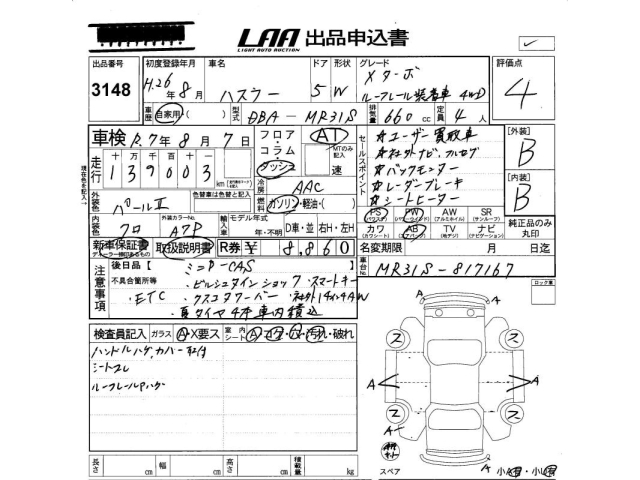 LAA 出品申込書
LIGHT AUTO AUCTION
出品番号 初度登録年月 車名 ドア 形状 グレード 評価点
3148 H.26年8月 ハスラー 5 W Xターボ 4
ルーフレール装着車 4WD
車歴 自家用( ) 型式 DBA-MR31S 排気量 660cc 定員 4人
車検 R.7年8月7日 フロア AT セールスポイント ★ユーザー買取車 [外装]
コラム MTのみ記入 ★社外ナビ、フルセグ B
走行 十万千百十一 ダッシュ 速 ★バックモニター
139003 km 冷房 AAC ★レーダーブレーキ [内装]
外装色 パールII 色替車は色替と記入 燃料 ガソリン・軽油・( ) ★シートヒーター B
内装色 クロ 外装カラーNo. A7P 輸入車 モデル年式 年 D車・並 右H・左H
PS PW AW SR 純正品のみ丸印
(パワステ) (パワーウインド) (アルミホイル) (サンルーフ)
カワ AB TV ナビ
(カワシート) (エアバッグ) (地デジ) (ナビゲーション)
新車保証書 取扱説明書 R券 ¥ 8,860 名変期限 月 日迄
注意事項 後日品( ミニPーCAS 車台No. MR31S-817167
不具合箇所等 ・ビルシュタインショック・スマートキー
・ETC ・クスコタワーバー ・社外14インチAW
・夏タイヤ4本車内積込
ロック車
検査員記入 ガラス A・X要ス 室内シート A・コゲ・穴・汚れ・破れ
ハンドルハゲ、カバー取付
シートスレ
ルーフレールAハゲ
A A
A A
A
スペア
長さ cm 幅 cm 高さ cm 積載量 kg